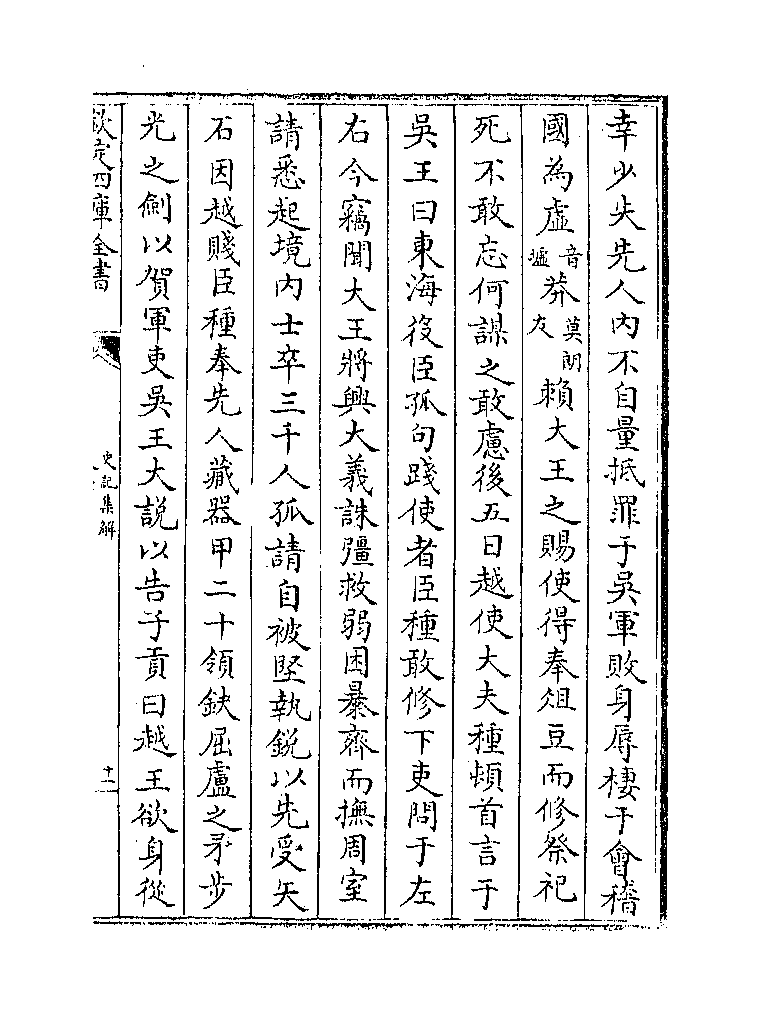 幸少失先人内不自量抵罪于吳軍敗身辱棲于會稽
國為虚音墟莽莫朗反賴大王之賜使得奉俎豆而修祭祀
死不敢忘何謀之敢慮後五日越使大夫種頓首言于
吳王曰東海役臣孤句踐使者臣種敢修下吏問于左
右今竊聞大王將興大義誅彊救弱困暴齊而撫周室
請悉起境内士卒三千人孤請自被堅執鋭以先受矢
石因越賤臣種奉先人藏器甲二十領鈇屈盧之矛步
光之劍以賀軍吏吳王大説以告子貢曰越王欲身從
欽定四庫全書
史記集解
十一